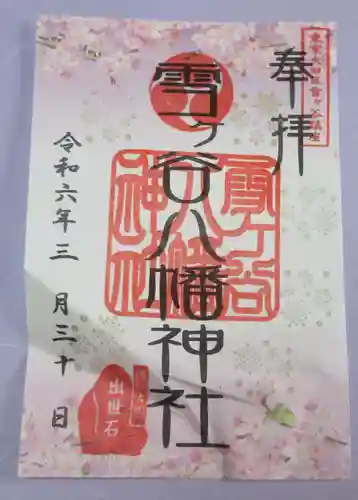 奉拝
東京大田区雪ヶ谷鎮座
雪ヶ谷八幡神社
雪ヶ谷八幡神社
令和六年三月三十日
出世石